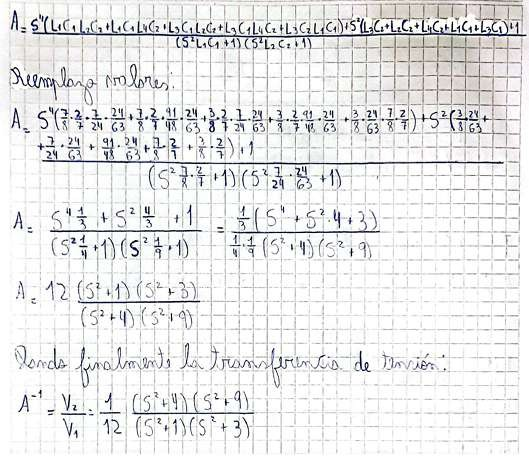 A = S⁴(L₁C₁L₂C₂+L₁C₁L₄C₂+L₃C₁L₂C₂+L₃C₁L₄C₂+L₃C₂L₁C₁)+S²(L₃C₂+L₂C₂+L₄C₂+L₁C₁+L₃C₁)+1
(S²L₁C₁+1)(S²L₂C₂+1)
Reemplazo valores:
A = S⁴(7/8·2/7·7/24·24/63+7/8·2/7·91/48·24/63+3/8·2/7·7/24·24/63+3/8·2/7·91/48·24/63+3/8·24/63·7/8·2/7)+S²(3/8·24/63+
+7/24·24/63+91/48·24/63+7/8·2/7+3/8·2/7)+1
(S² 7/8·2/7+1)(S² 7/24·24/63+1)
A = S⁴ 1/3 + S² 4/3 + 1 = 1/3 (S⁴+S²·4+3)
(S² 1/4+1)(S² 1/9+1) 1/4·1/9 (S²+4)(S²+9)
A = 12 (S²+1)(S²+3)
(S²+4)(S²+9)
Dando finalmente la transferencia de tensión:
A⁻¹ = V₂/V₁ = 1/12 (S²+4)(S²+9)
(S²+1)(S²+3)